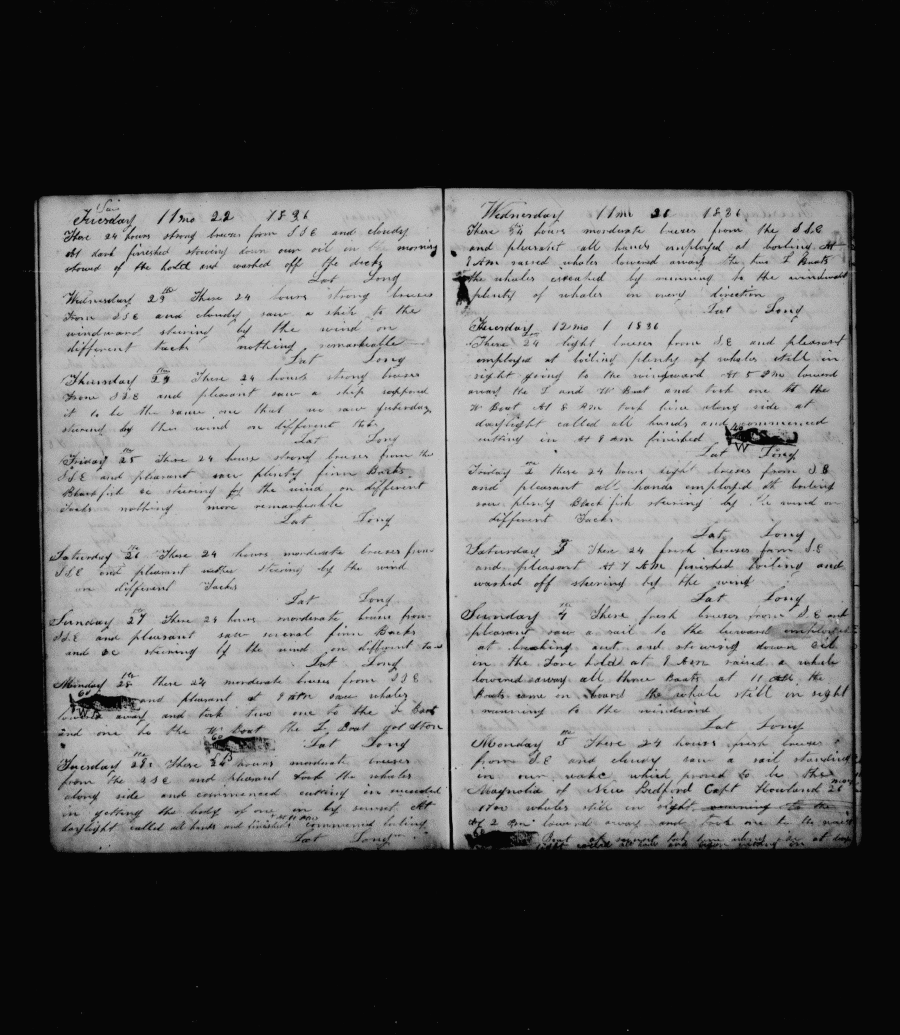 Tuesday 11 mo 22 1836
These 24 hours strong breezes from S.S.E and cloudy
At dark finished stowing down our oil in the morning
stowed of the hold and washed off the decks
Lat Long
Wednesday 23 These 24 hours strong breezes
from S.S.E and cloudy saw a ship to the
windward steering by the wind on
different tacks nothing remarkable
Lat Long
Thursday 24 These 24 hours strong breezes
From S.S.E and pleasant saw a ship
it to be the same one that we saw yesterday
steering by the wind on different
Lat Long
Friday 25 These 24 hours strong breezes from the
S.S.E and pleasant saw plenty finn Backs
Blackfish &c steering by the wind on different
Tacks nothing more remarkable
Lat Long
Saturday 26 These 24 hours morderate breezes from
S.S.E and pleasant steering by the wind
on different Tacks
Lat Long
Sunday 27 These 24 hours morderate breeze from
S.S.E and pleasant saw several finn Backs
and &c steering by the wind on different
Lat Long
Monday 28 these 24 morderate breezes from S.S.E
and pleasant at 9 Am saw whales
away and took two one to the L Boat
and one to the W Boat the L Boat got
Lat Long
Tuesday 29 These 24 hours morderate breezes
from the S.S.E and pleasant took the whales
along side and commenced cutting in
in getting the body of one in by sunset At
daylight called all hands and commenced boiling
Lat Long
Wednesday 11 mo 1836
These 24 hours morderate breezes from the S.S.E
and pleasant all hands employed at boiling At
8 Am raised whales lowered away the two L Boats
the whales by running to the windward
plenty of whales in every direction
Lat Long
12 mo 1 1836
These 24 light breezes from S.E and pleasant
employed at boiling plenty of whales still in
sight going to the windward At 5 Pm lowered
away the L and W Boat and took one to the
W Boat At 8 Am took him along side at
daylight called all hands and commenced
cutting in At 8 am finished
40
W
Lat Long
Friday 2 these 24 hours light breezes from S.E
and pleasant all hands employed at boiling
saw plenty Black fish steering by the wind on
different Tacks
Lat Long
Saturday 3 These 24 fresh breezes from S.E
and pleasant At 7 AM finished Boiling and
washed off steering by the wind
Lat Long
Sunday 4 These fresh breezes from S.E and
pleasant saw a sail to the leeward employed
at breaking out and stowing down Oil
in the Fore hold at 8 Am raised a whale
lowered away all three Boats at 11 AM the
Boats came on board the whale still in sight
running to the windward
Lat Long
Monday 5 These 24 hours fresh breezes
from S.E and cloudy saw a sail standing
in our wake which proved to be the
Magnolia of New Bedford Capt Howland 26
1700 whales still in sight running to the
At 2 Pm lowered away and took one to the
Boat at sunset took him